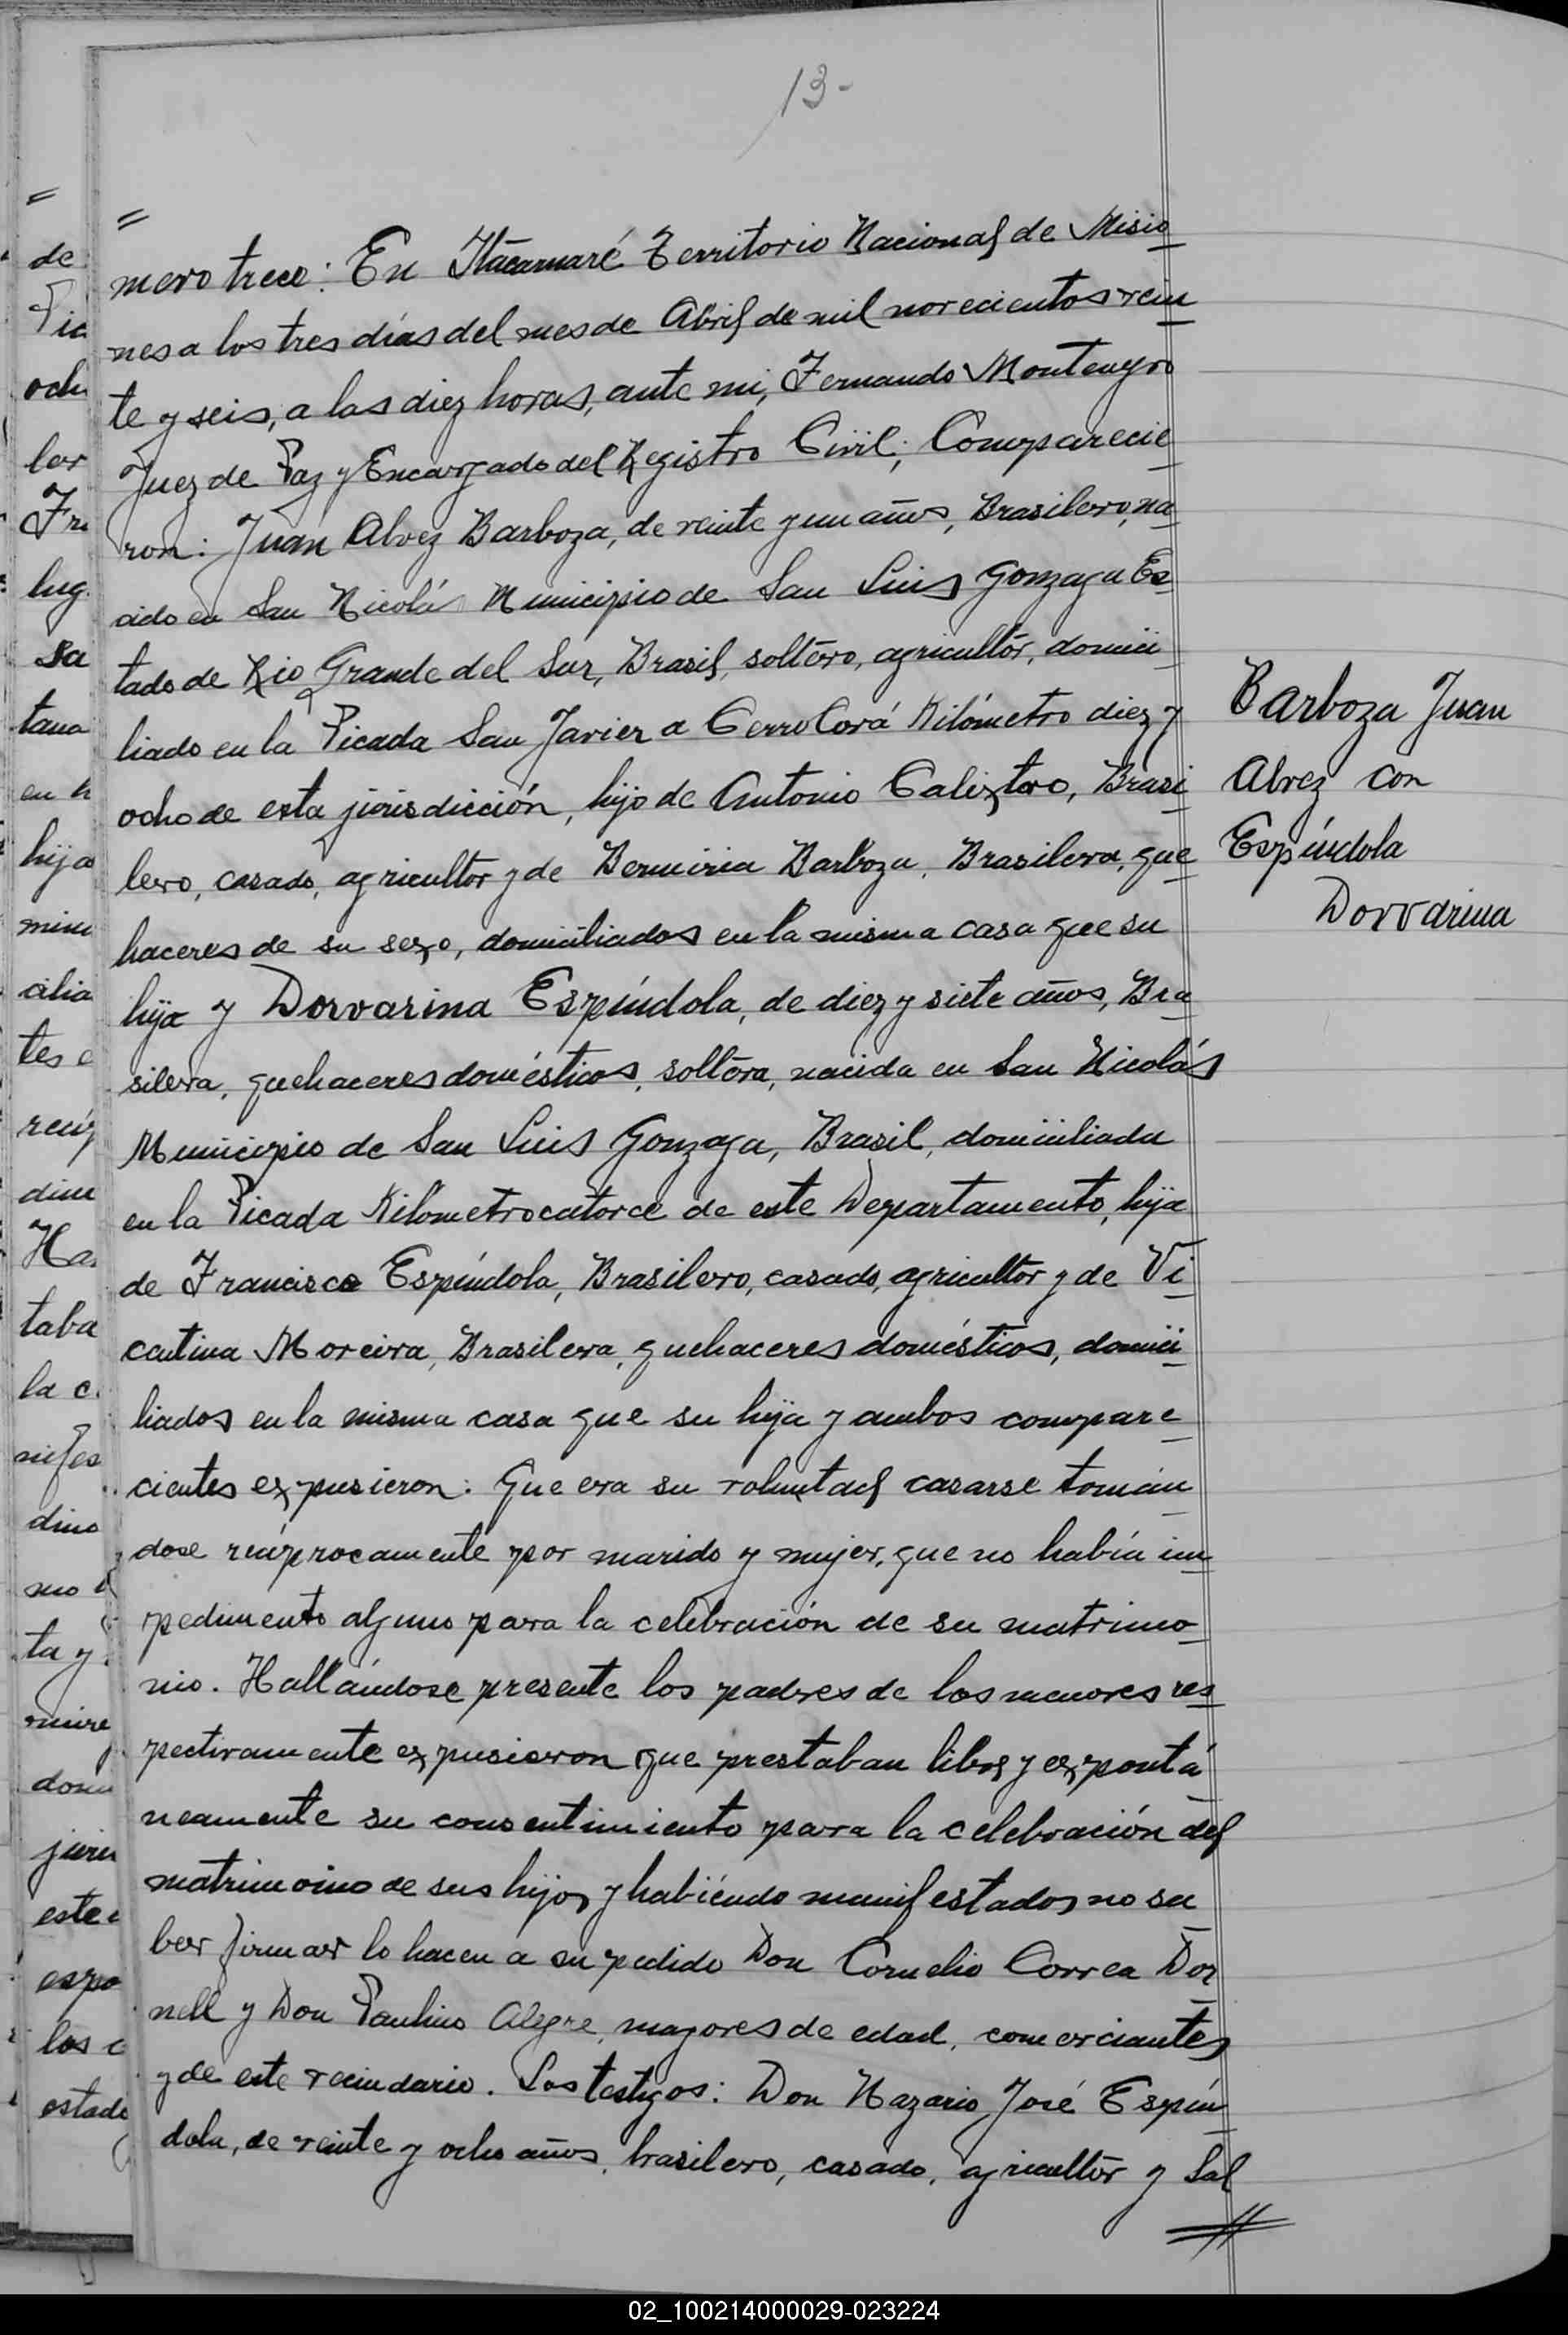 13-
=
mero trece: En Itacaruaré Territorio Nacional de Misio
nes a los tres días del mes de Abril de mil novecientos vein
te y seis, a las diez horas, ante mi, Fernando Montenyro
Juez de Paz y Encargado del Registro Civil; Comparecie
ron: Juan Alvez Barboza, de veinte y un años, Brasilero, na
cido en San Nicolás Municipio de San Luis Gonzaga Es
tado de Rio Grande del Sur, Brasil, soltero, agricultor, domici
liado en la Picada San Javier a Cerro Corá Kilómetro diez y
ocho de esta jurisdicción, hijo de Antonio Calixtro, Brasi
lero, casado, agricultor y de Barboza, Brasilera, que
haceres de su sexo, domiciliados en la misma casa que su
hija y Dorvarina Espíndola, de diez y siete años, Bra
silera, quehaceres domésticos, soltera, nacida en San Nicolás
Municipio de San Luis Gonzaga, Brasil, domiciliada
en la Picada Kilómetro catorce de este Departamento, hija
de Francisco Espíndola, Brasilero, casado, agricultor y de Vi
centina Moreira, Brasilera, quehaceres domésticos, domici
liados en la misma casa que su hija y ambos compare
cientes expusieron: Que era su voluntad casarse tomán
dose recíprocamente por marido y mujer, que no había im
pedimento alguno para la celebración de su matrimo
nio. Hallándose presente los padres de los menores res
pectivamente expusieron que prestaban libre y expontá
neamente su consentimiento para la celebración del
matrimoino de sus hijos y habiéndo manifestados no sa
ber firmar lo hacen a su pedido Don Cornelio Correa Dor
nell y Don Paulino Alegre, mayores de edad, comerciantes
y de este vecindario. Los testigos: Don Nazario José Espín
dola, de veinte y ocho años, brasilero, casado, agricultor y Sal
Barboza Juan
Alvez con
Espíndola
Dorvarina
=
de
och
Fr
lug
sa
tana
en h
hija
cilia
tes
Ha
taba
la c
dino
mo
ta y
este
espo
los c
estado
02_100214000029-023224